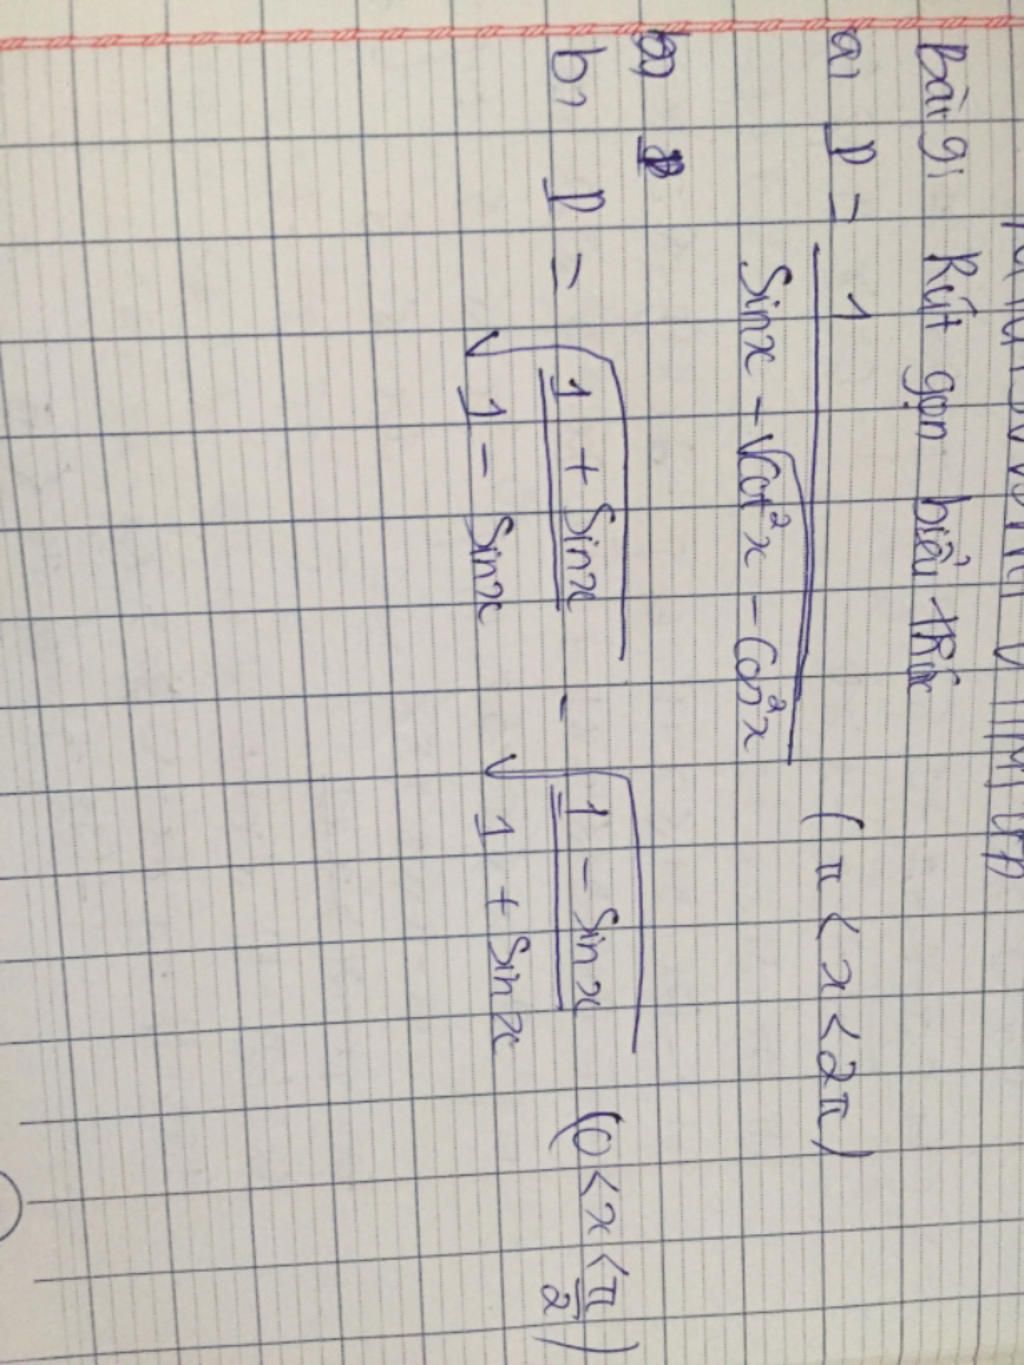 Bài 9: Rút gọn biểu thức
a, P = 1 / (Sinx - √(Cot²x - Cos²x)) (π < x < 2π)
b, P = √((1 + Sinx) / (1 - Sinx)) - √((1 - Sinx) / (1 + Sinx)) (0 < x < π/2)